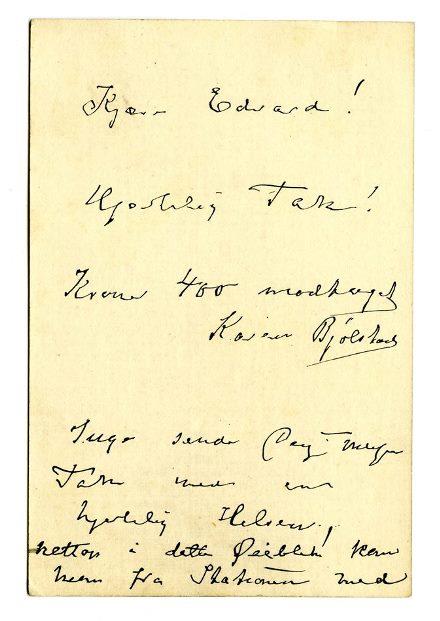 Kjære Edvard!
Hjertelig Tak!
Kroner 400 modtaget
Karen Bjölstad
Inge sender Dig mange
Tak med en
hjertelig Helsen!
netton i dette Øieblik kom
heem fra Stationen med